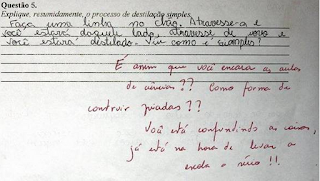 Questão 5.
Explique, resumidamente, o processo de destilação simples.
Faça uma linha no chão. Atravesse-a e
você estará daquele lado, atravesse de novo e
você estará destilado. Viu como é simples?
É assim que você encara as aulas
de ciências?? Como forma de
contruir piadas??
Você está confundindo as coisas,
já está na hora de levar a
escola a sério!!.